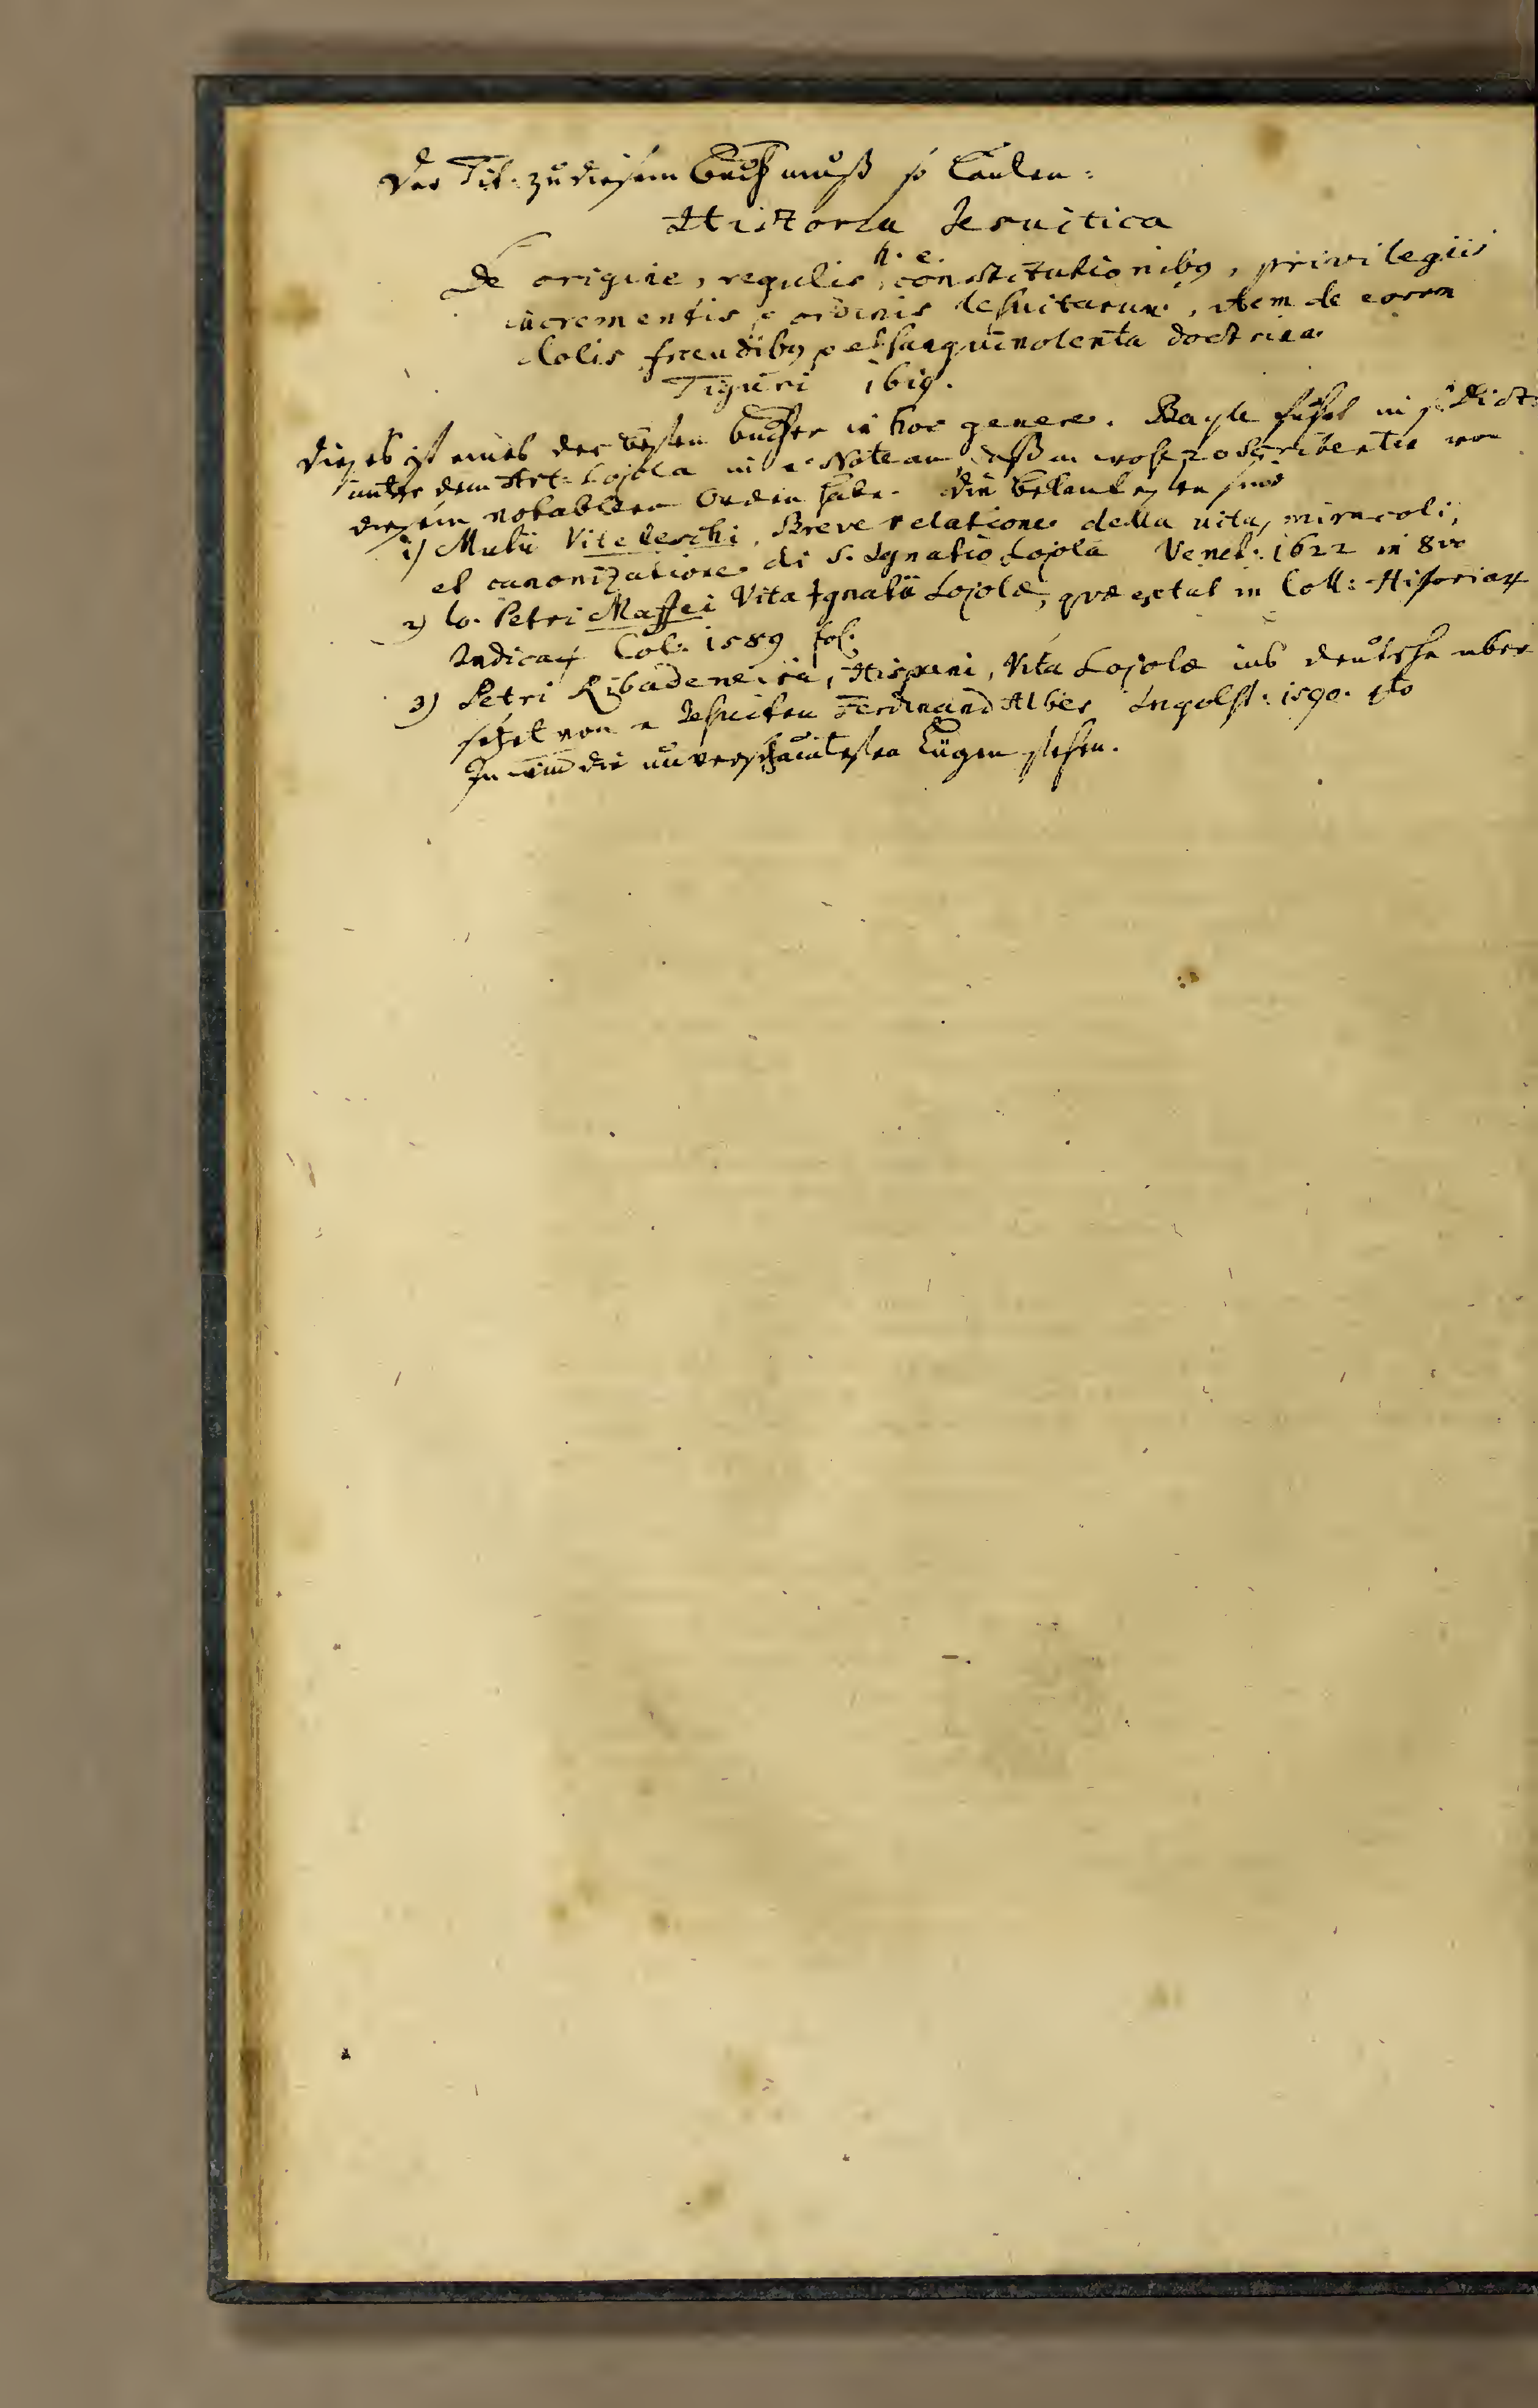 Der Tit. zu diesem Buch muß so lauten:
Historia Jesuitica
h. e.
De origine, regulis, constitutionibq, privilegiis
incrementis ordinis Jesuitarum, item de eorum
dolis fraudibq et sanguinolenta doctrina
Tiguri 1619.
Dieses ist eines der besten bücher in hoc genere. Bayle führt in s. Dict:
unter dem Art: Lojola in Note an, daß m wohl 20 Scribenten von
diesem notablen Orden habe. Die bekantesten sind
1) Mutii Viteleschi, Breve relatione della vita, miracoli,
et canonizatione di S. Ignatio Lojola Venet: 1622 in 8vo
2) Io. Petri Maffei Vita Ignatii Lojolæ, quæ extat in Coll: Historiar
Indicar Col. 1589 fol.
3) Petri Ribadeneira, Hispani, Vita Lojolæ ins deutsche uber
setzet von Jesuiten Ferdinand Alber Ingolst: 1590. 4to
In die unverschämtesten Lügen stehen.